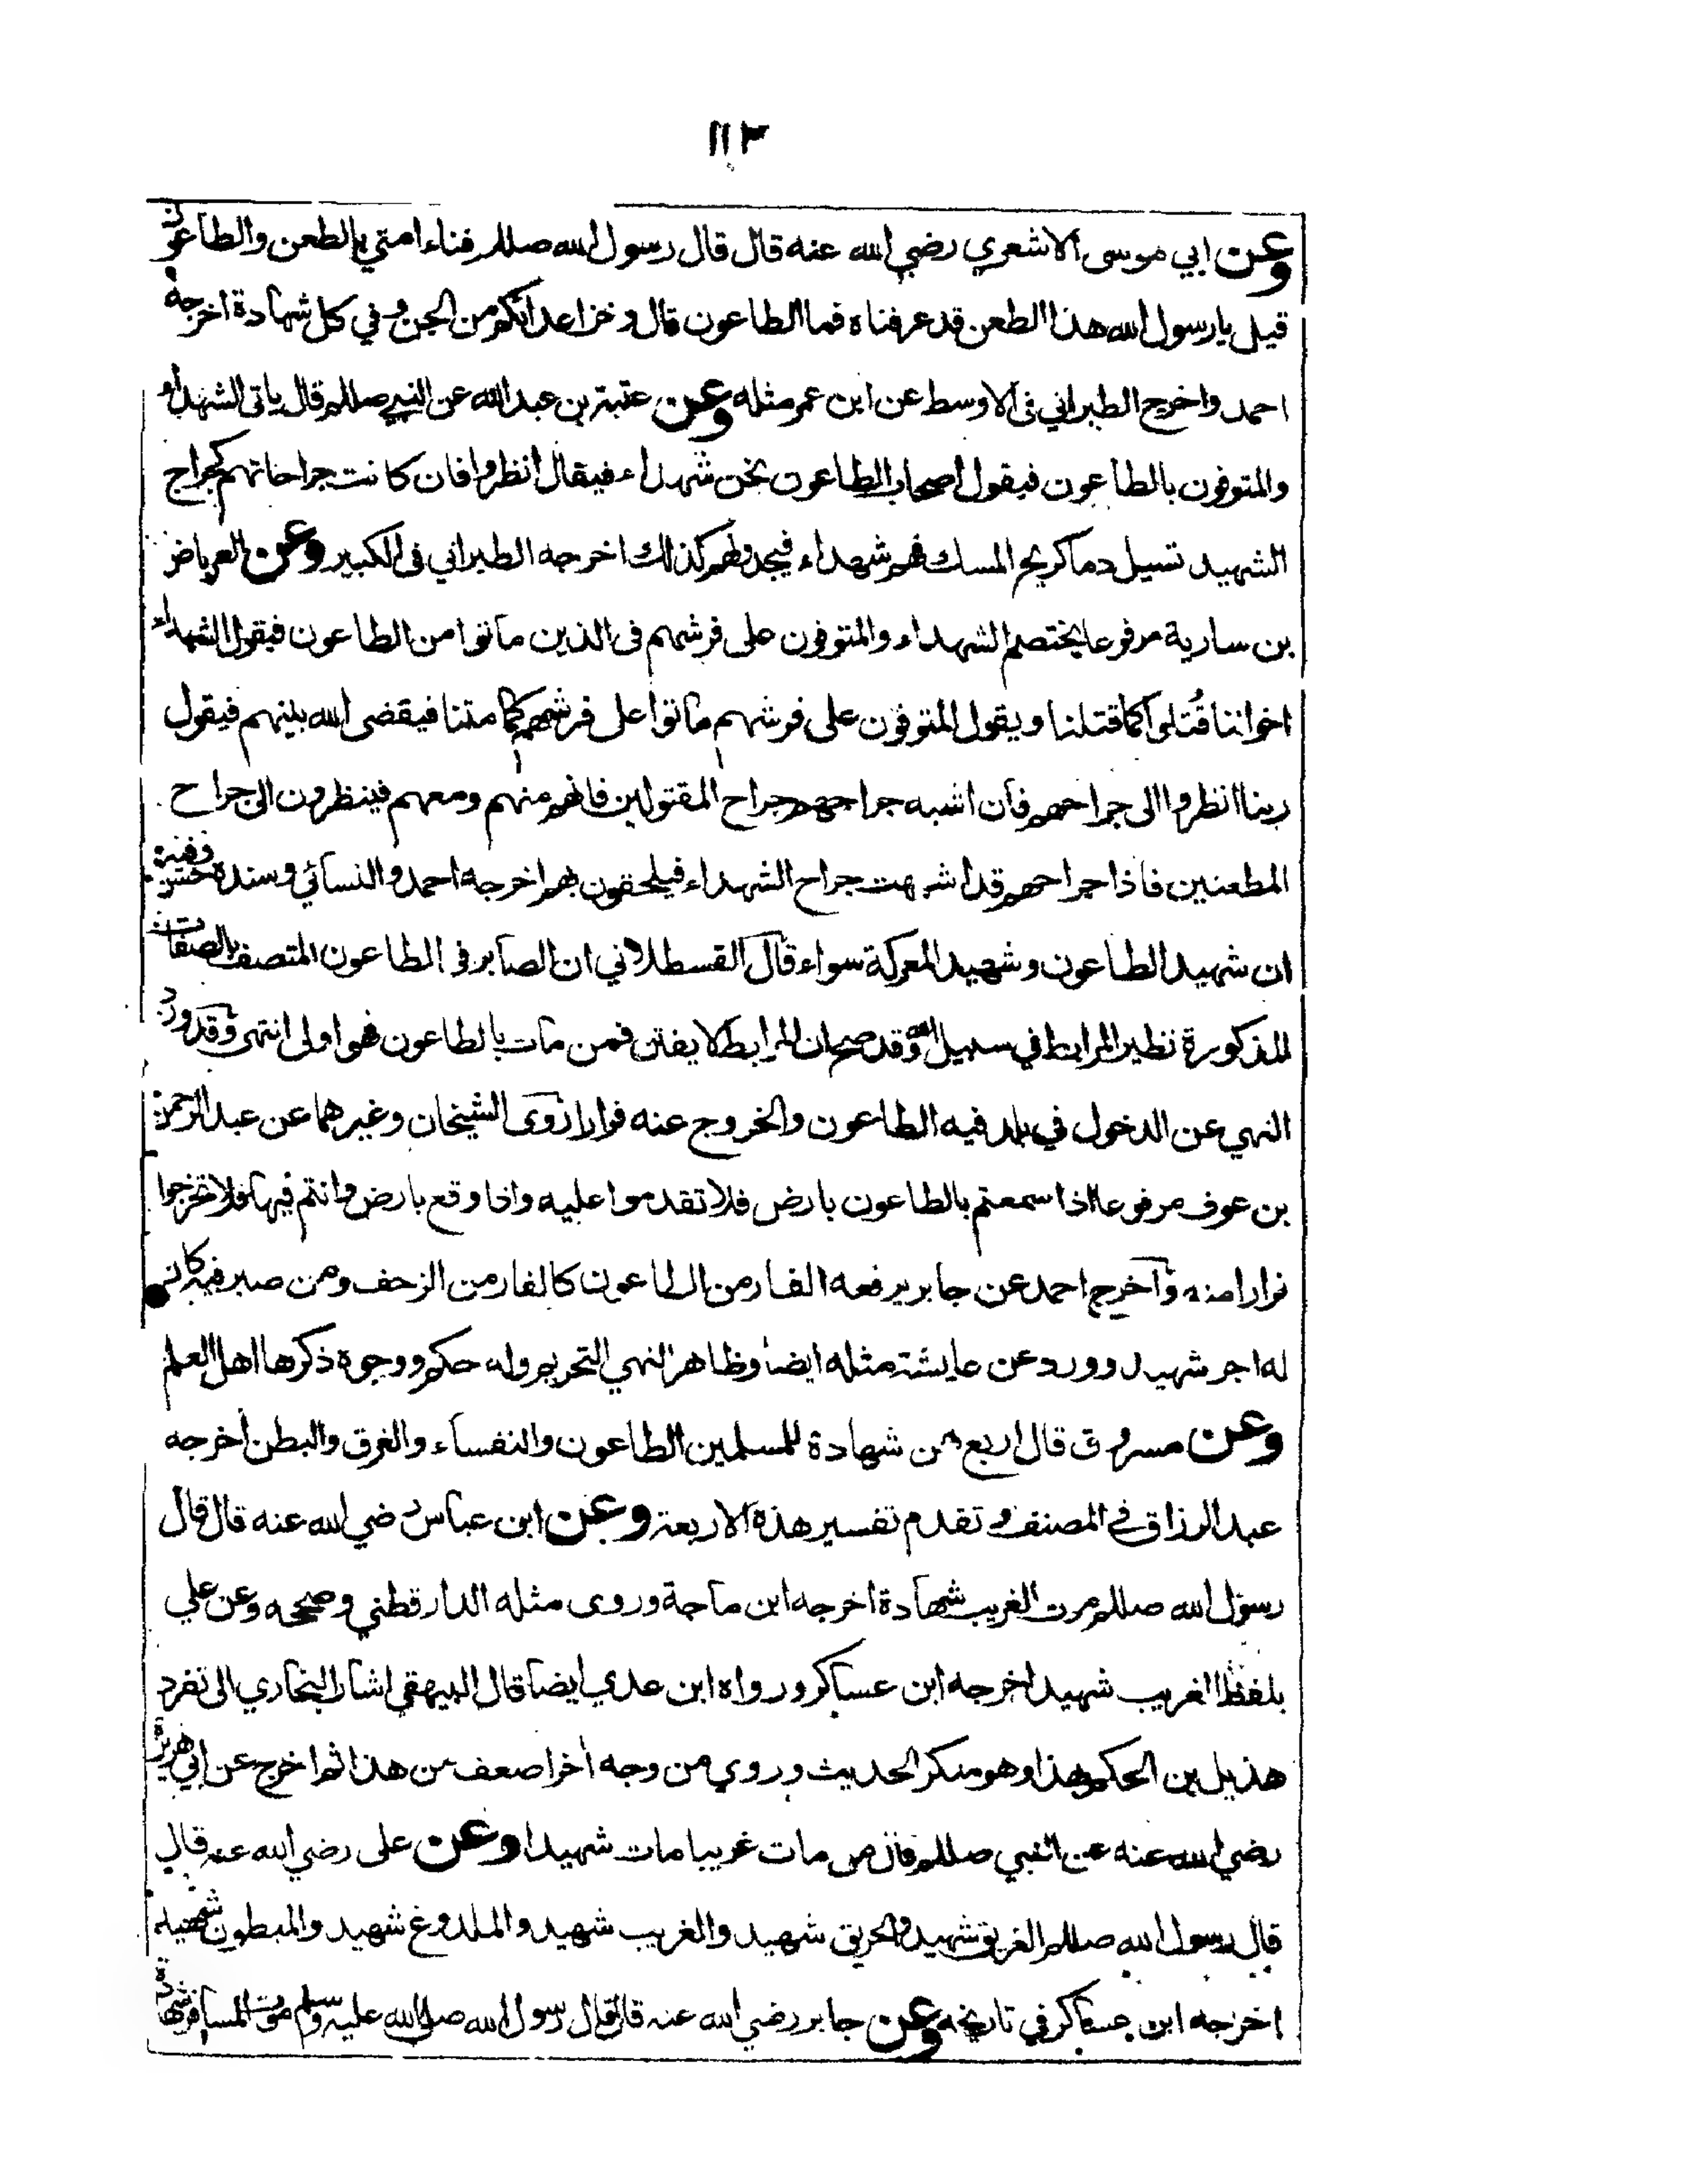 ١١٣
وعن ابي موسى الاشعري رضي الله عنه قال قال رسول الله صللم فناء امتي بالطعن والطاعون
قيل يا رسول الله هذا الطعن قد عرفناه فما الطاعون قال وخز اعدائكم من الجن وفي كل شهادة اخرجه
احمد واخرج الطبراني فى الاوسط عن ابن عمر مثله وعن عتبة بن عبد الله عن النبي صللم قال ياتى الشهداء
والمتوفون بالطاعون فيقول اصحاب الطاعون نحن شهداء فيقال انظروا فان كانت جراحاتهم كجراح
الشهيد تسيل دما كريح المسك فهم شهداء فيجدونهم كذالك اخرجه الطبراني فى الكبير وعن العرباض
بن سارية مرفوعا يختصم الشهداء والمتوفون على فرشهم فى الذين ماتوا من الطاعون فيقول الشهداء
اخواننا قُتلوا كما قتلنا ويقول المتوفون على فرشهم ماتوا على فرشهم كما متنا فيقضى الله بينهم فيقول
ربنا انظروا الى جراحهم فان اشبه جراحهم جراح المقتولين فانهم منهم ومعهم فينظرون الى جراح
المطعنين فاذا جراحهم قد اشبهت جراح الشهداء فيلحقون بهم اخرجه احمد والنسائي وسنده حسن وفيه
ان شهيد الطاعون وشهيد المعركة سواء قال القسطلاني ان الصابر في الطاعون المتصف بالصفات
المذكورة نظير المرابط في سبيل الله وقد صح ان المرابط لا يفتن فمن مات بالطاعون فهو اولى انتهى وقد ورد
النهي عن الدخول في بلد فيه الطاعون والخروج عنه فرارا روى الشيخان وغيرهما عن عبد الرحمن
بن عوف مرفوعا اذا سمعتم بالطاعون بارض فلا تقدموا عليه واذا وقع بارض وانتم فيها فلا تخرجوا
فرارا منه واخرج احمد عن جابر يرفعه الفار من الطاعون كالفار من الزحف ومن صبر فيه كان
له اجر شهيد وورد عن عايشة مثله ايضا وظاهر النهي التحريم وله حكم ووجوه ذكرها اهل العلم
وعن مسروق قال اربع هن شهادة للمسلمين الطاعون والنفساء والغرق والبطن اخرجه
عبد الرزاق في المصنف وتقدم تفسير هذه الاربعة وعن ابن عباس رضي الله عنه قال قال
رسول الله صللم موت الغريب شهادة اخرجه ابن ماجة وروى مثله الدارقطني وصححه وعن علي
بلفظ الغريب شهيد اخرجه ابن عساكر ورواه ابن عدي ايضا قال البيهقي اشار البخاري الى تفرد
هذيل بن الحكم بهذا وهو منكر الحديث وروي من وجه اخر اضعف من هذا ثم اخرج عن ابي هريرة
رضي الله عنه عن النبي صللم قال من مات غريبا مات شهيدا وعن على رضي الله عنه قال
قال رسول الله صللم الغريق شهيد والحريق شهيد والغريب شهيد والملدوغ شهيد والمبطون شهيد
اخرجه ابن عساكر في تاريخه وعن جابر رضي الله عنه قال قال رسول الله صلى الله عليه وسلم موت المسافر شهادة